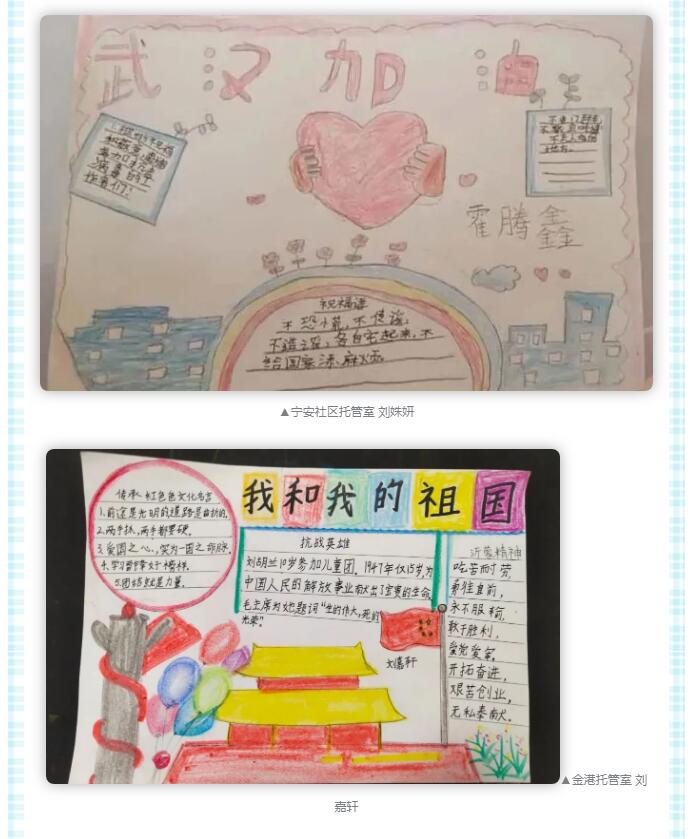 武汉加油
不造门
霍腾鑫
祝福语
不恐小慌,不传谣,
不造谣,各自宅起来,不
给国家添麻烦。
▲宁安社区托管室 刘姝妍
我和我的祖国
传承红色文化名言
1.前途是光明的道路是曲折的。
2.两手抓,两手都要硬。
3.爱国之心,实为一国之命脉。
4.学习雷锋好榜样。
5.团结就是力量。
抗战英雄
刘胡兰10岁参加儿童团。1947年仅15岁,为
中国人民的解放事业献出了宝贵的生命
毛主席为她题词“生的伟大,死的
光荣”
刘嘉轩
沂蒙精神
吃苦耐劳,
勇往直前,
永不服输,
敢于胜利,
爱党爱军,
开拓奋进,
艰苦创业,
无私奉献。
▲金港托管室 刘
嘉轩